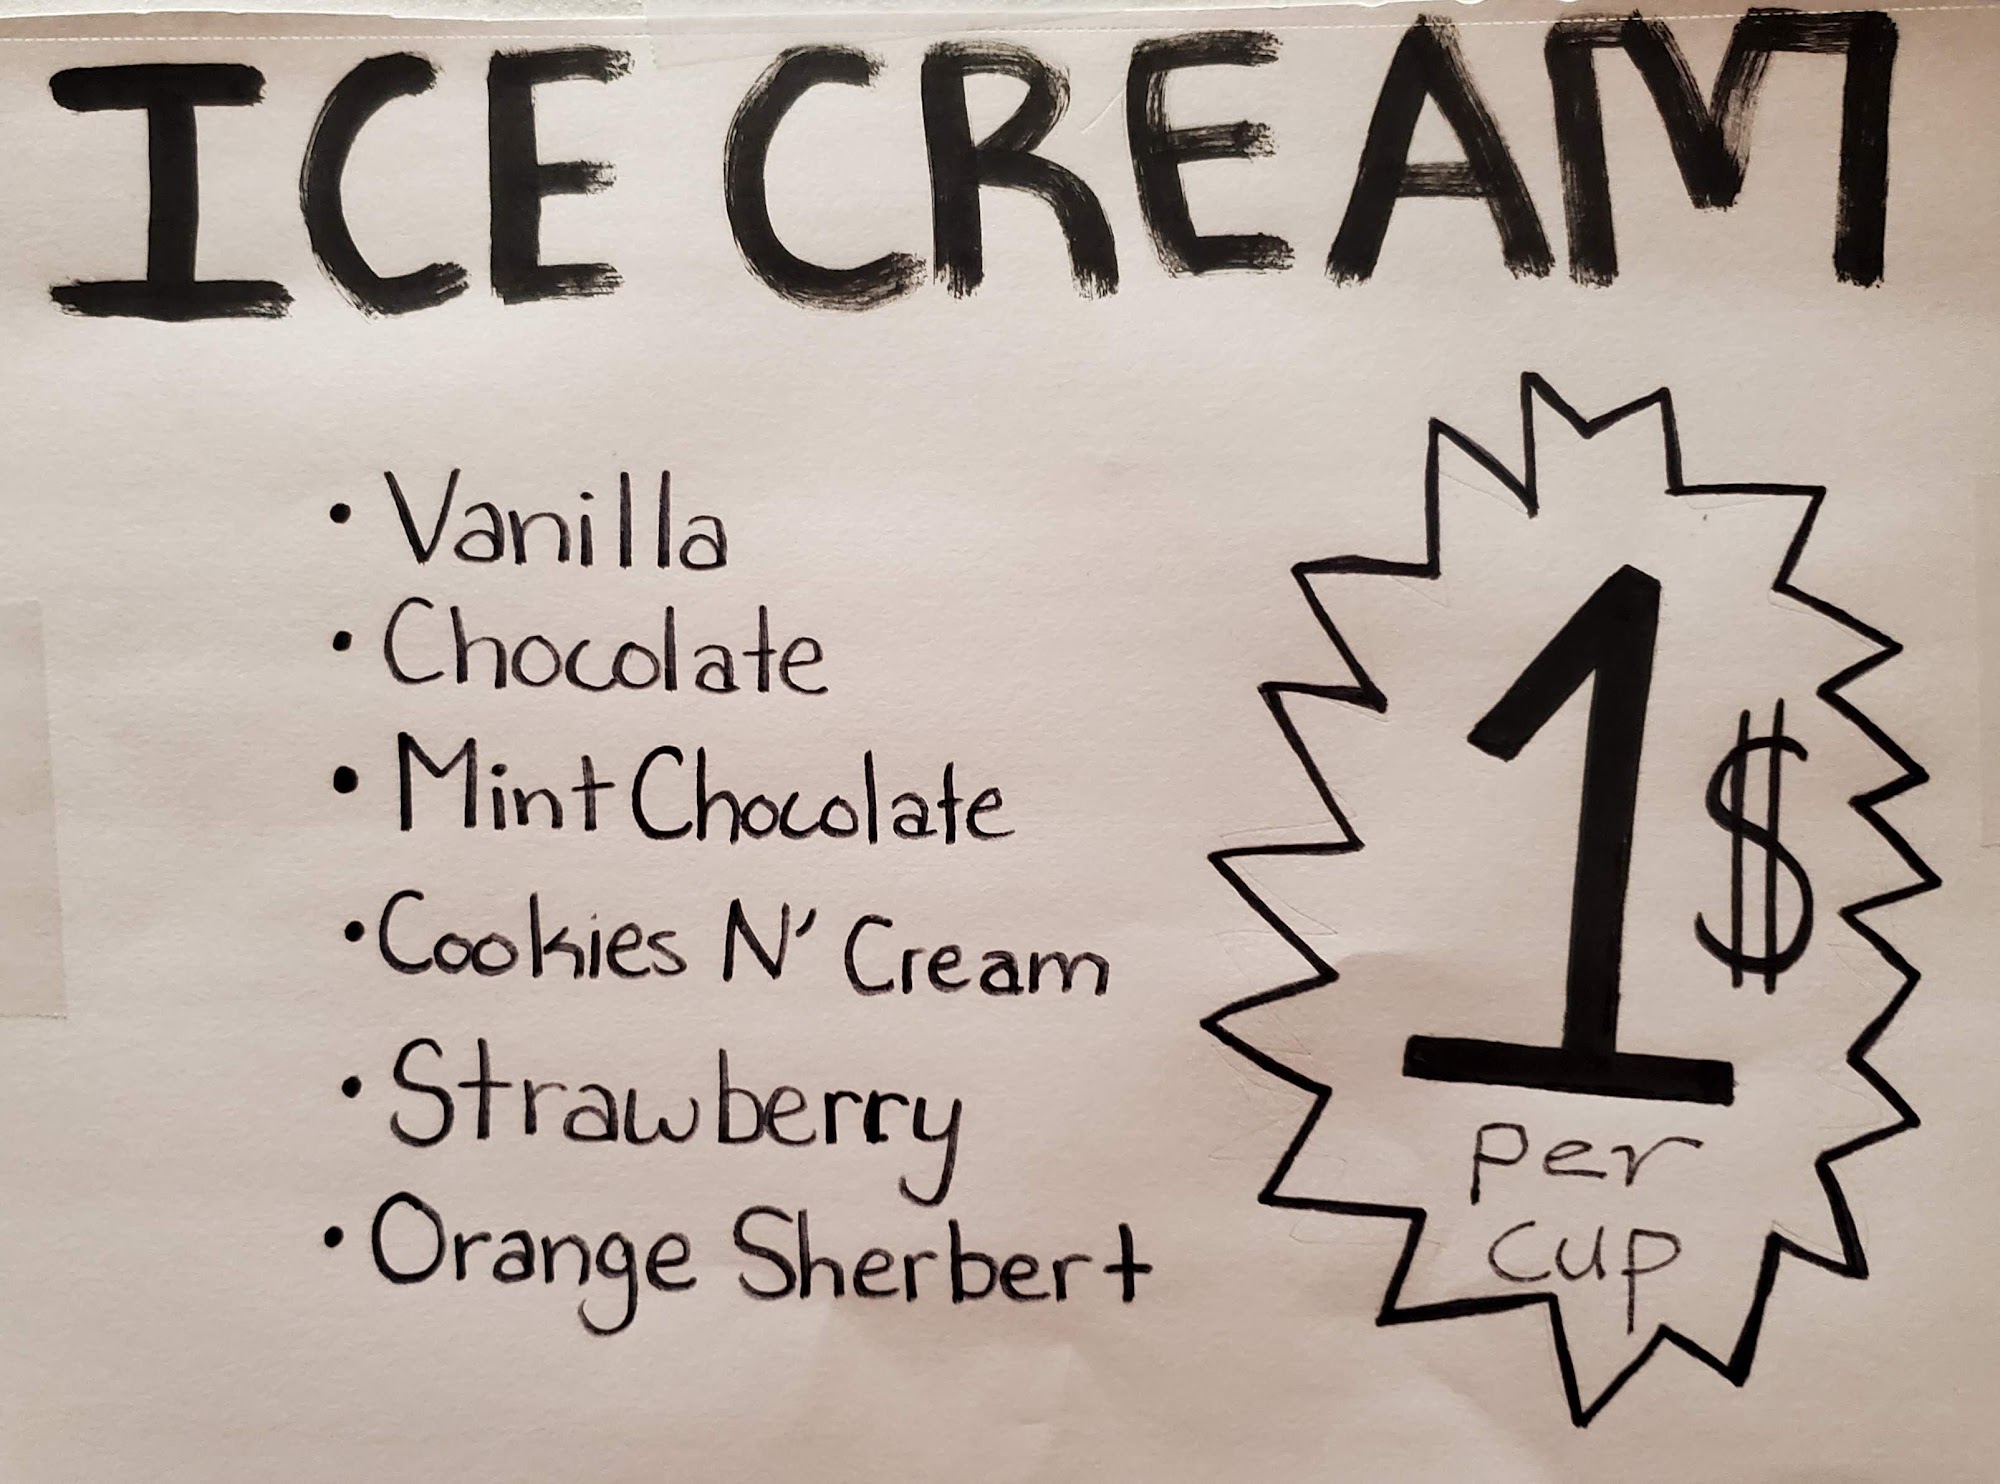 ICE CREAM
• Vanilla
• Chocolate
• Mint Chocolate
• Cookies N' Cream
• Strawberry
• Orange Sherbert
1$
per
cup